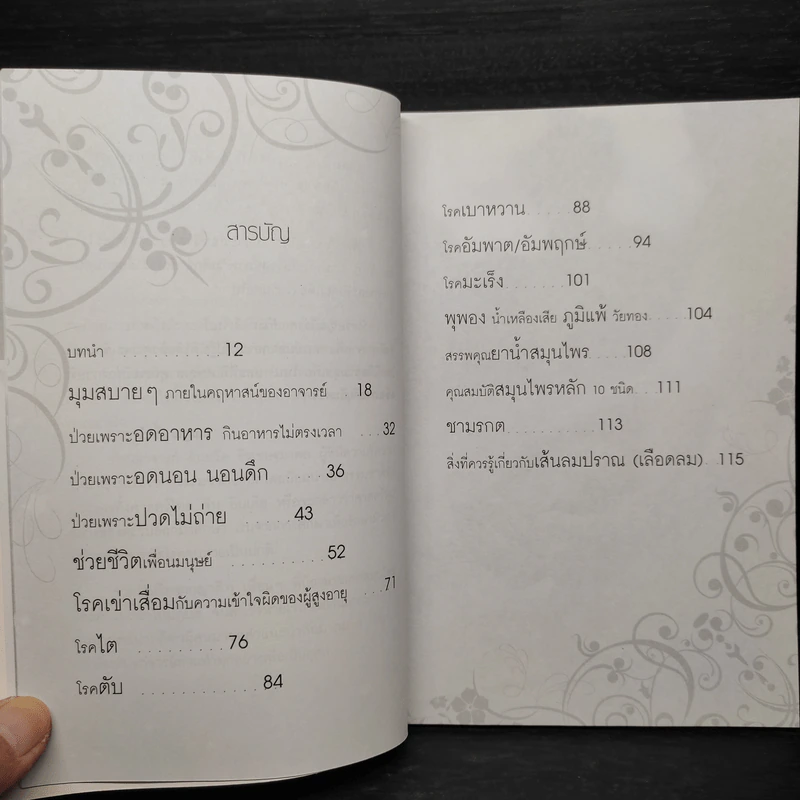 สารบัญ
บทนำ ........... 12
มุมสบายๆ ภายในคฤหาสน์ของอาจารย์ . 18
ป่วยเพราะอดอาหาร กินอาหารไม่ตรงเวลา ... 32
ป่วยเพราะอดนอน นอนดึก ..... 36
ป่วยเพราะปวดไม่ถ่าย ....... 43
ช่วยชีวิตเพื่อนมนุษย์ ............ 52
โรคเข่าเสื่อมกับความเข้าใจผิดของผู้สูงอายุ ... 71
โรคไต ......... 76
โรคตับ ............ 84
โรคเบาหวาน ..... 88
โรคอัมพาต/อัมพฤกษ์ ..... 94
โรคมะเร็ง ....... 101
พุพอง น้ำเหลืองเสีย ภูมิแพ้ วัยทอง ..... 104
สรรพคุณยาน้ำสมุนไพร ..... 108
คุณสมบัติสมุนไพรหลัก 10 ชนิด ... 111
ชามรกต ........... 113
สิ่งที่ควรรู้เกี่ยวกับเส้นลมปราณ (เลือดลม) .. 115